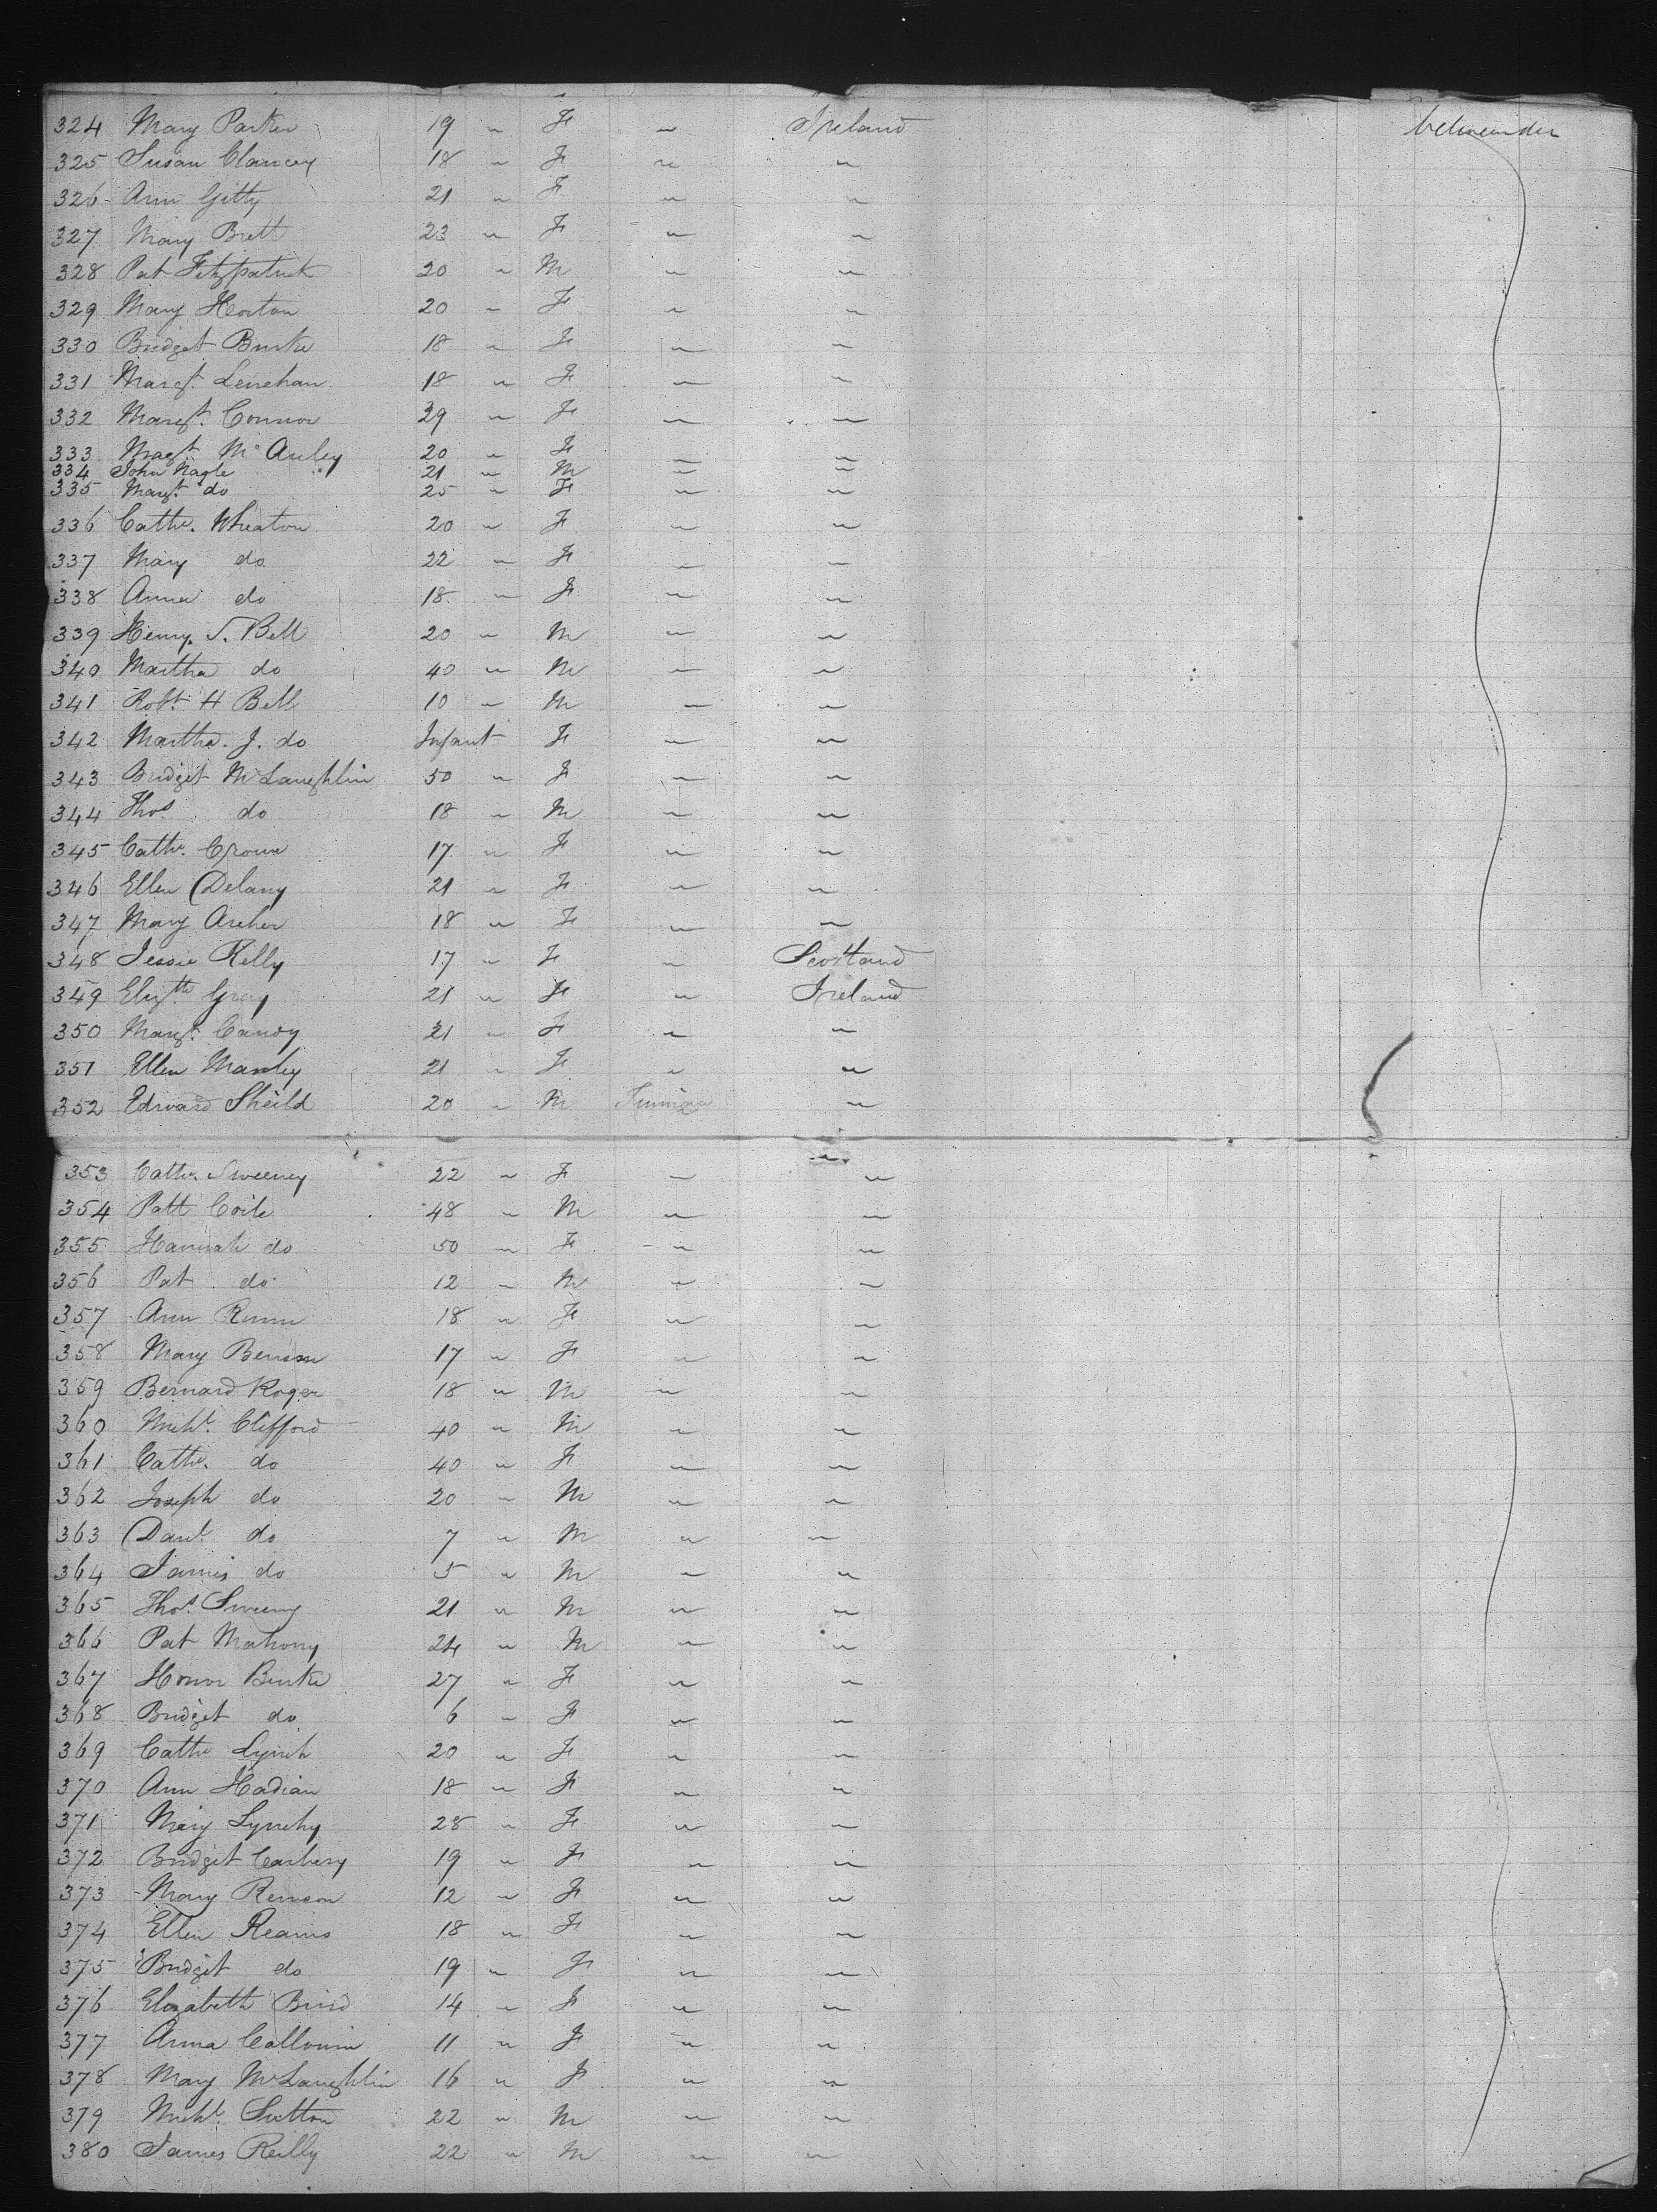 324 Mary Parker 19 " F " Ireland between decks
325 Susan Clancey 18 " F " "
326 Ann Gitty 21 " F " "
327 Mary Brett 23 " F " "
328 Pat Fitzpatrick 20 " M " "
329 Mary Horton 20 " F " "
330 Bridget Burke 18 " F " "
331 Margt. Lenehan 18 " F " "
332 Margt. Connor 29 " F " "
333 Magt. McAuley 20 " F " "
334 John Nagle 21 " M " "
335 Margt. do 25 " F " "
336 Cathe. Wheaton 20 " F " "
337 Mary do 22 " F " "
338 Anna do 18 " F " "
339 Henry S. Bell 20 " M " "
340 Martha do 40 " M " "
341 Robt. H Bell 10 " M " "
342 Martha J. do Infant F " "
343 Bridget McLaughlin 50 " F " "
344 Thos. do 18 " M " "
345 Cathe. Crowe 17 " F " "
346 Ellen Delany 21 " F " "
347 Mary Archer 18 " F " "
348 Jessie Kelly 17 " F " Scotland
349 Elizth Gray 21 " F " Ireland
350 Margt. Candy 21 " F " "
351 Ellen Manley 21 " F " "
352 Edward Sheild 20 " M "
353 Cathe. Sweeney 22 " F " "
354 Patt Coile 48 " M " "
355 Hannah do 50 " F " "
356 Pat do 12 " M " "
357 Ann 18 " F " "
358 Mary Benson 17 " F " "
359 Bernard Roger 18 " M " "
360 Michl. Clifford 40 " M " "
361 Cathe. do 40 " F " "
362 Joseph do 20 " M " "
363 Danl. do 7 " M " "
364 James do 5 " M " "
365 Thos. Sweeny 21 " M " "
366 Pat Mahony 24 " M " "
367 Honor Burke 27 " F " "
368 Bridget do 6 " F " "
369 Cathe Lynch 20 " F " "
370 Ann Hadian 18 " F " "
371 Mary Lynchy 28 " F " "
372 Bridget Carbery 19 " F " "
373 Mary 12 " F " "
374 Ellen Reams 18 " F " "
375 Bridget do 19 " F " "
376 Elizabeth 14 " F " "
377 Anna 11 " F " "
378 Mary McLaughlin 16 " F " "
379 Michl. Sutton 22 " M " "
380 James Reilly 22 " M " "